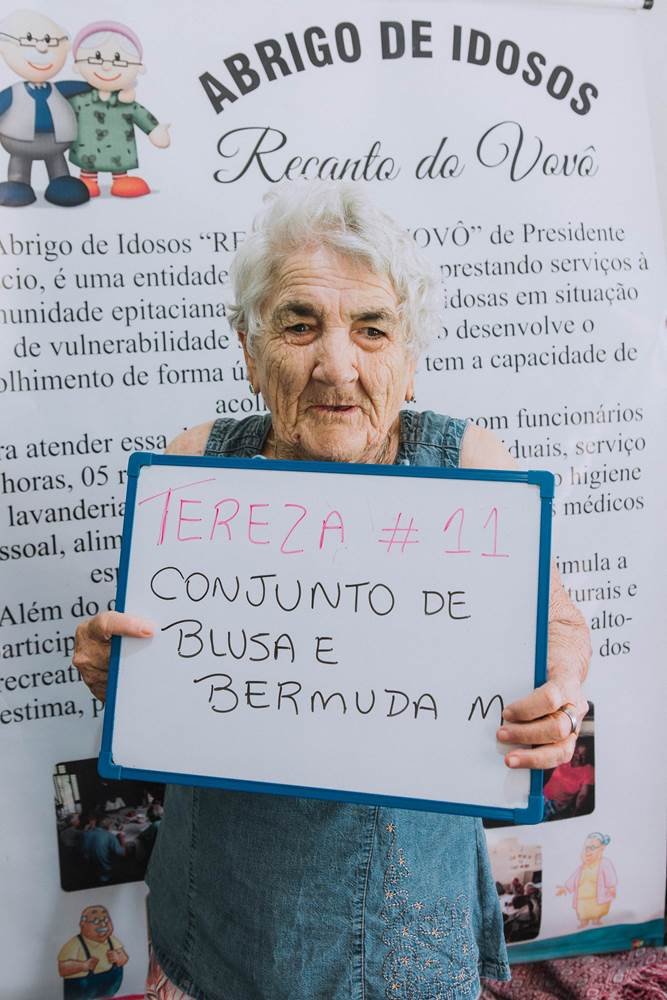 ABRIGO DE IDOSOS
Recanto do Vovô
Abrigo de Idosos “RE OVÔ” de Presidente
cio, é uma entidade prestando serviços à
munidade epitaciana idosas em situação
de vulnerabilidade o desenvolve o
olhimento de forma ú tem a capacidade de
acol
ra atender essa com funcionários
horas, 05 r duais, serviço
lavanderia higiene
ssoal, alim médicos
esp imula a
Além do turais e
articip alto-
recreati dos
estima, p
TEREZA # 11
CONJUNTO DE
BLUSA E
BERMUDA M